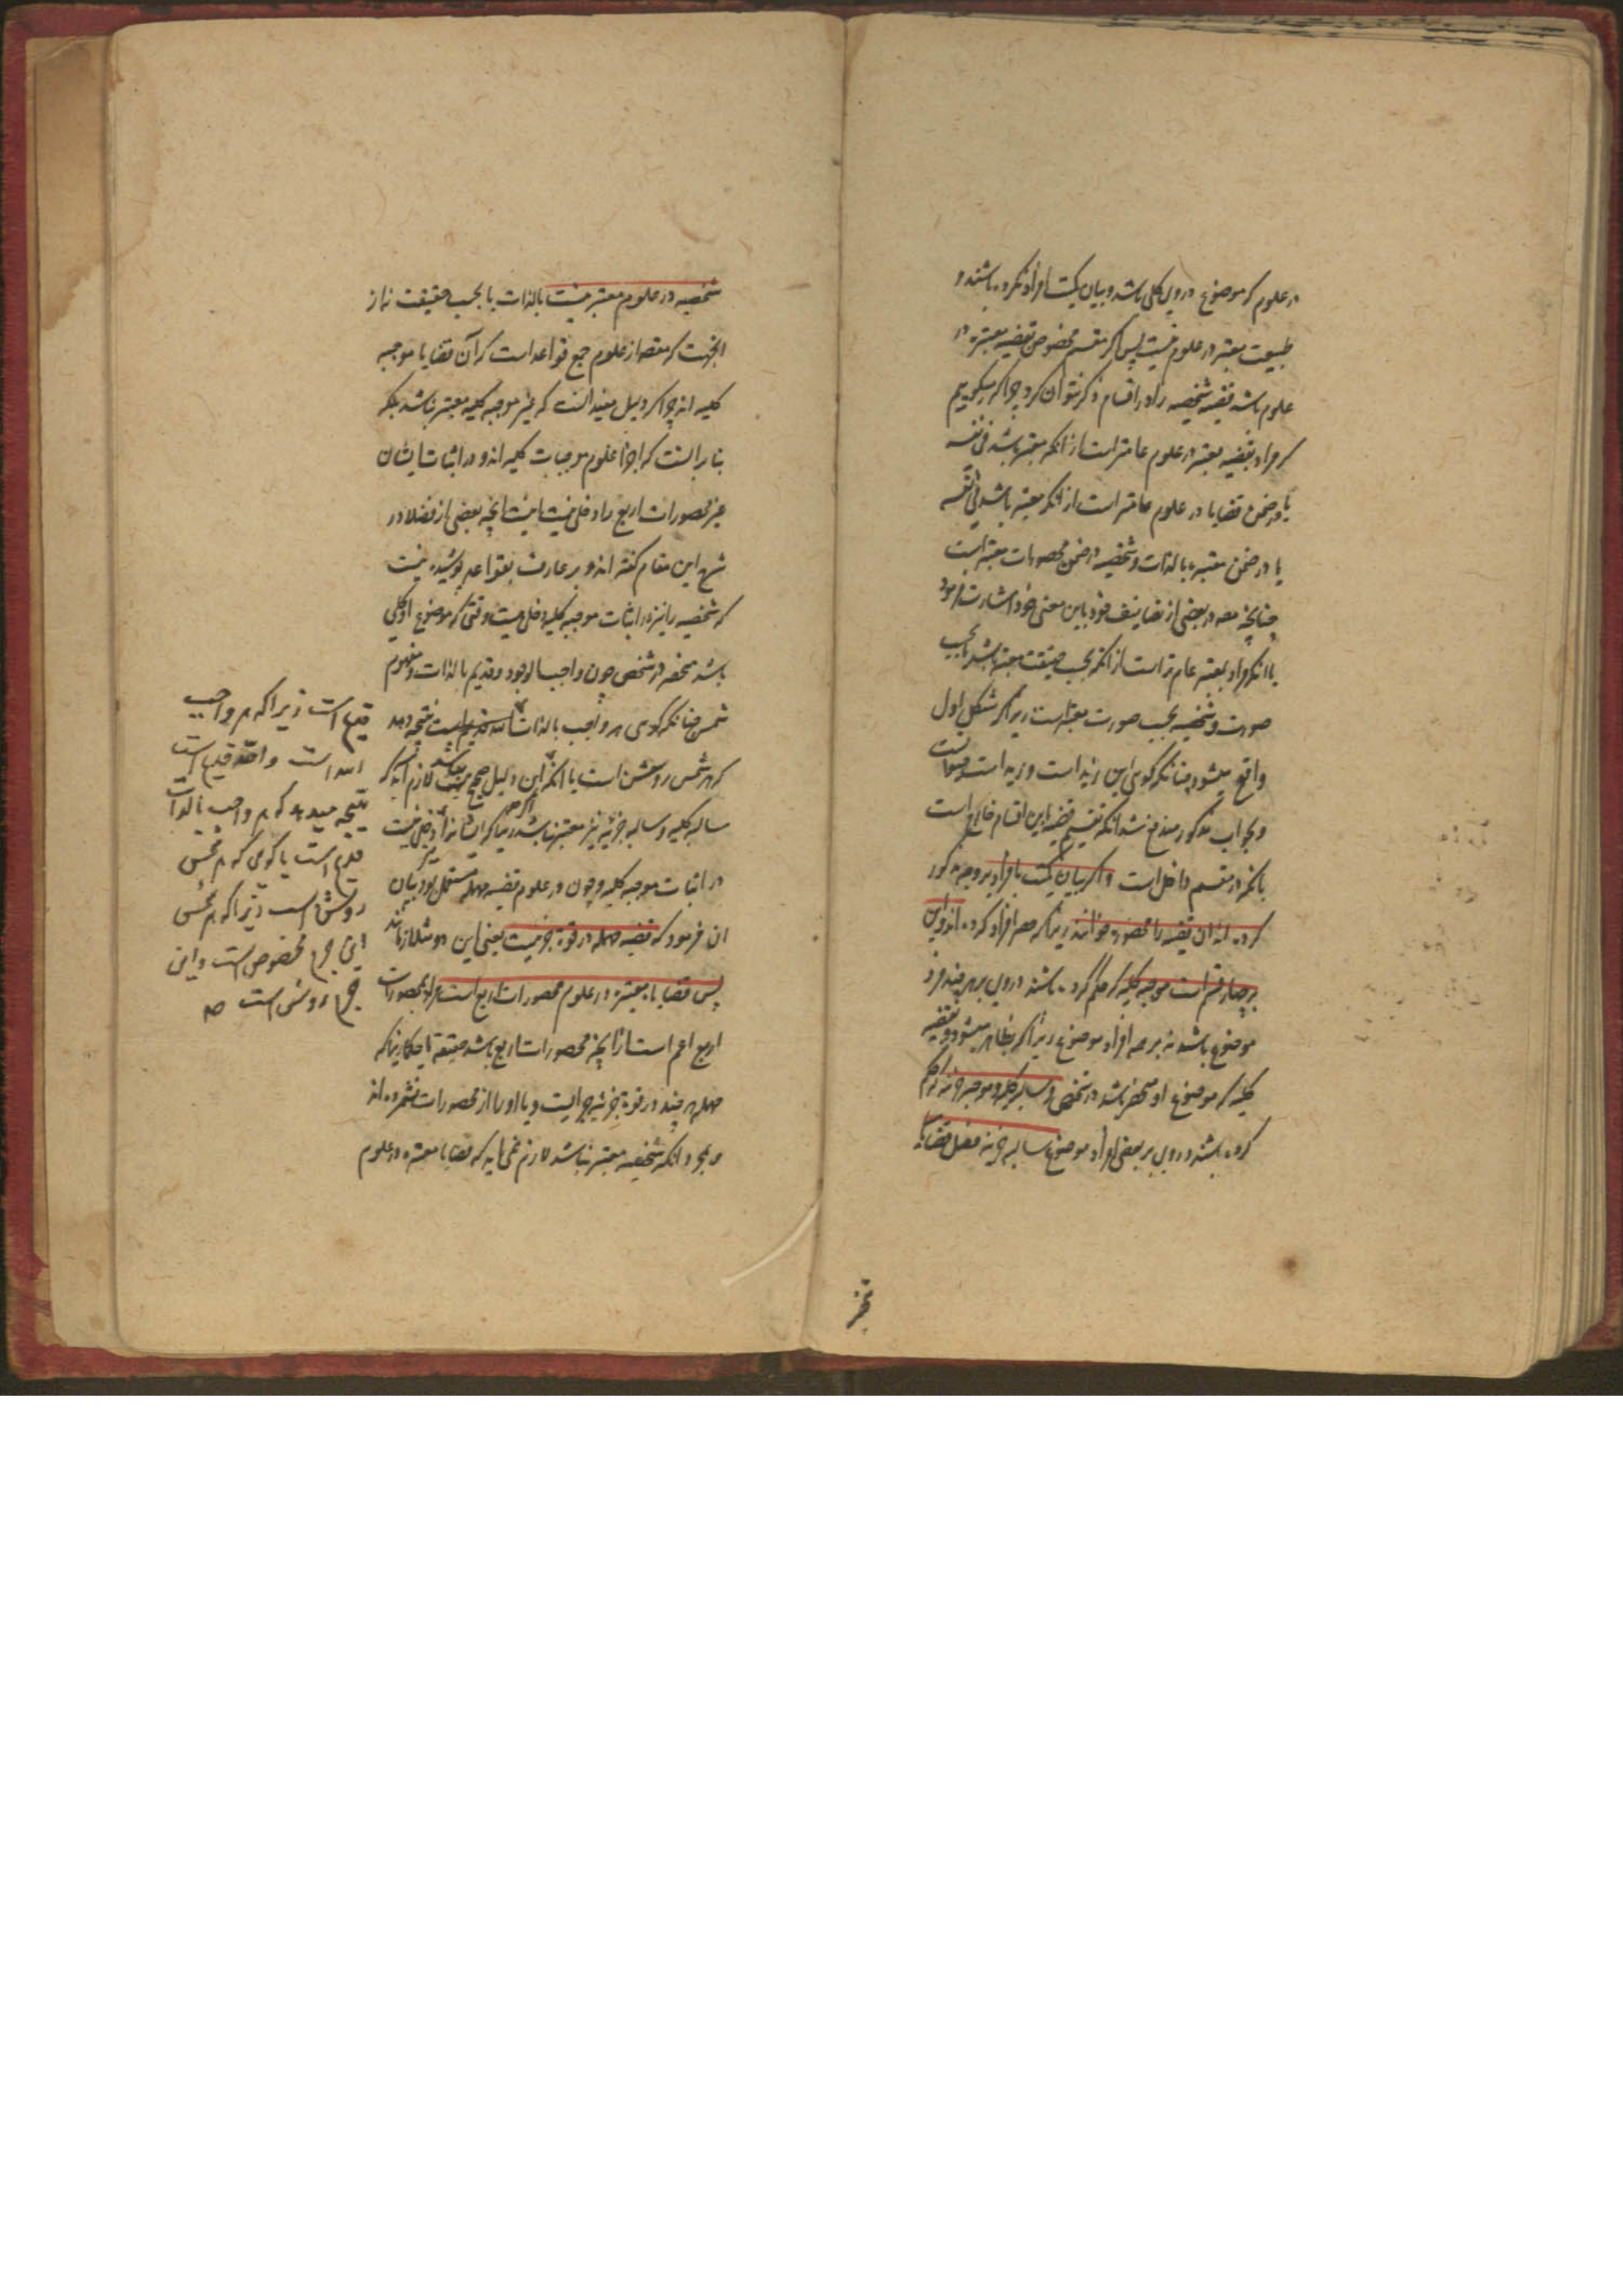 در علوم که موضوع در وی کلی باشد و بیان کمیت افراد نکرده باشند و
طبیعت معتبر در علوم نیست پس اگر مقسم مخصوص بقضیه معتبره در
علوم باشد قضیه شخصیه را در اقسام ذکر نتوان کرد چرا که میگوییم
که مراد بقضیه معتبر در علوم عامتر است از انکه معتبر باشد فی نفسه
یا در ضمن قضایا در علوم عامتر است از انکه معتبر باشد فی نفسه
یا در ضمن معتبره بالذات و شخصیه در ضمن محصورات معتبر است
چنانچه مصه در بعضی از تصانیف خود باین معنی خود اشارت فرمود
یا انکه مراد بمعتبر عام تر است از انکه بحسب حقیقت معتبر باشد یا بحسب
صورت و شخصیه بحسب صورت معتبر است زیرا که شکل اول
واقع میشود چنانکه گوی این زید است و زید است
و بجواب مذکور مندفع شد انکه تقسیم قضیه باین اقسام خارج است
بانکه در مقسم داخل است و اگر بیان کمیت بافراد بر وجه مذکور
کرده اند ان قضیه را محصوره خوانند زیرا که حصر افراد کرده اند و این
بر چهار قسم است موجبه کلیه که حکم کرده باشند در وی بر هر چند فرد
موضوع باشد نه بر همه افراد موضوع زیرا که ظاهر میشود و قضیه
کلیه که موضوع او منحصر باشد در شخص و سالبه کلیه و موجبه جزئیه که حکم
کرده باشند در وی بر بعضی افراد موضوع سالبه جزئیه
شخصیه در علوم معتبر نیست بالذات یا بحسب حقیقت نه از
انجهت که مقصد از علوم جمع قواعد است که آن قضایا موجبه
کلیه اند چرا که دلیل مفید انست که غیر موجبه کلیه معتبر نباشد بلکه
بنا بر انست که اجزا علوم موجبات کلیه اند و در اثبات ایشان
غیر محصورات اربع را دخلی نیست انچه بعضی از فضلا در
شرح این مقام گفته اند و بر عارف بقواعد پوشیده نیست
که شخصیه را نیز در اثبات موجبه کلیه دخلی هست وقتی که موضوع او کلی
باشد منحصر در شخص چون واجب الوجود و قدیم بالذات و مفهوم
شمس چنانکه گوی هر واجب بالذات الله قدیم است نتیجه دهد
که هر شمس روشن است با انکه این دلیل صحیح باشد لازم آید که
سالبه کلیه و سالبه جزئیه نیز معتبر نباشد زیرا که ایشانرا دخلی نیست
در اثبات موجبه کلیه و چون در علوم قضیه مهمله مستعمل بود بیان
ان فرمود که قضیه مهمله در قوة جزئیست یعنی این دو متلازمانند
پس قضایاء معتبره در علوم محصورات اربع است مراد بمحصورات
اربع اعم است از انچه محصورات اربع باشد حقیقة یا حکما زیرا که
مهمله هر چند در قوة جزئیه است و یا او را از محصورات نشمرده اند
و بمجرد انکه شخصیه معتبر نباشد لازم نمی اید که قضایا معتبره در علوم
قدیم است زیرا که هر واجب
الله است والله قدیم است
نتیجه میدهد که هر واجب بالذات
قدیم است یا گوی که هر شمس
روشن است زیرا که هر شمس
این جرم مخصوص است و این
جرم روشن است صح